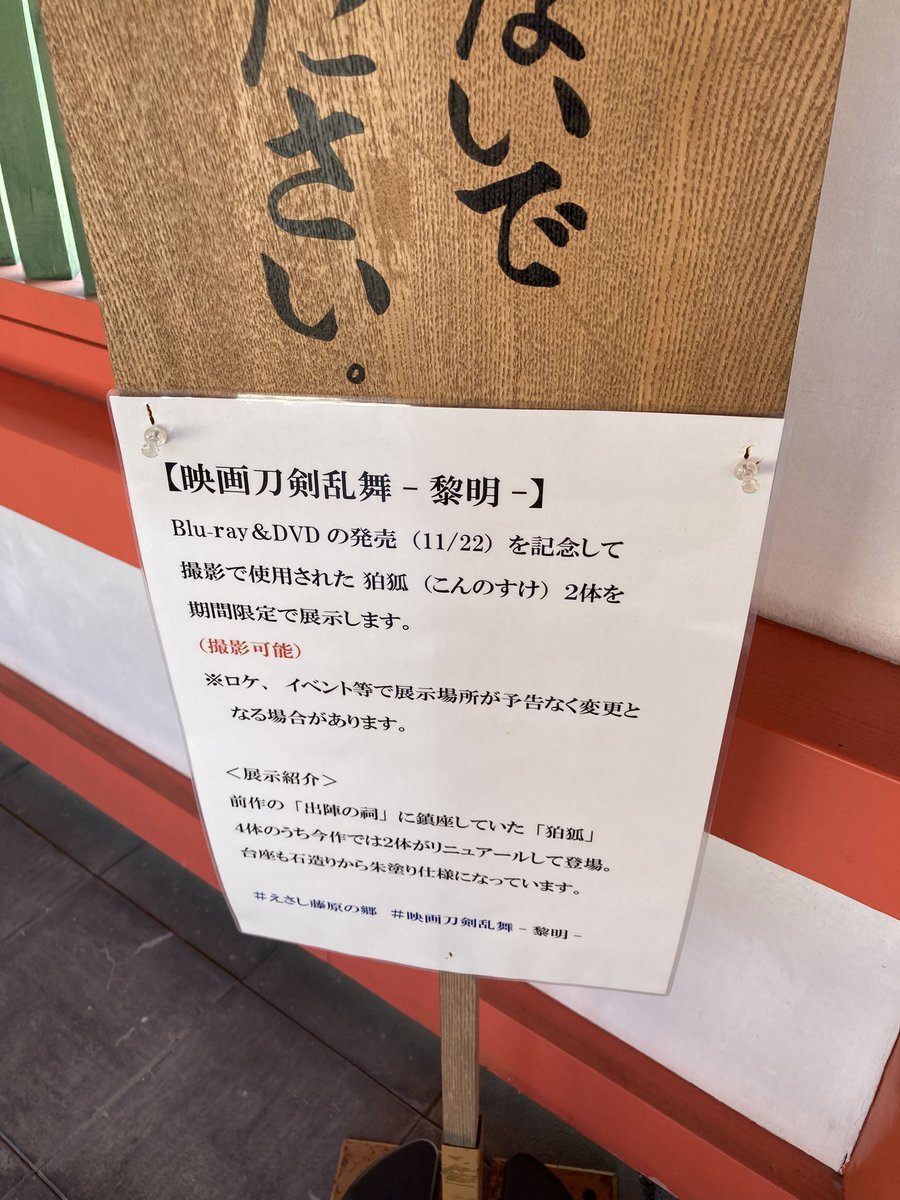 ないで
ださい。
【映画刀剣乱舞－黎明－】
Blu-ray＆DVDの発売（11/22）を記念して
撮影で使用された 狛狐（こんのすけ）2体を
期間限定で展示します。
（撮影可能）
※ロケ、イベント等で展示場所が予告なく変更と
なる場合があります。
＜展示紹介＞
前作の「出陣の祠」に鎮座していた「狛狐」
4体のうち今作では2体がリニュアールして登場。
台座も石造りから朱塗り仕様になっています。
＃えさし藤原の郷 ＃映画刀剣乱舞－黎明－